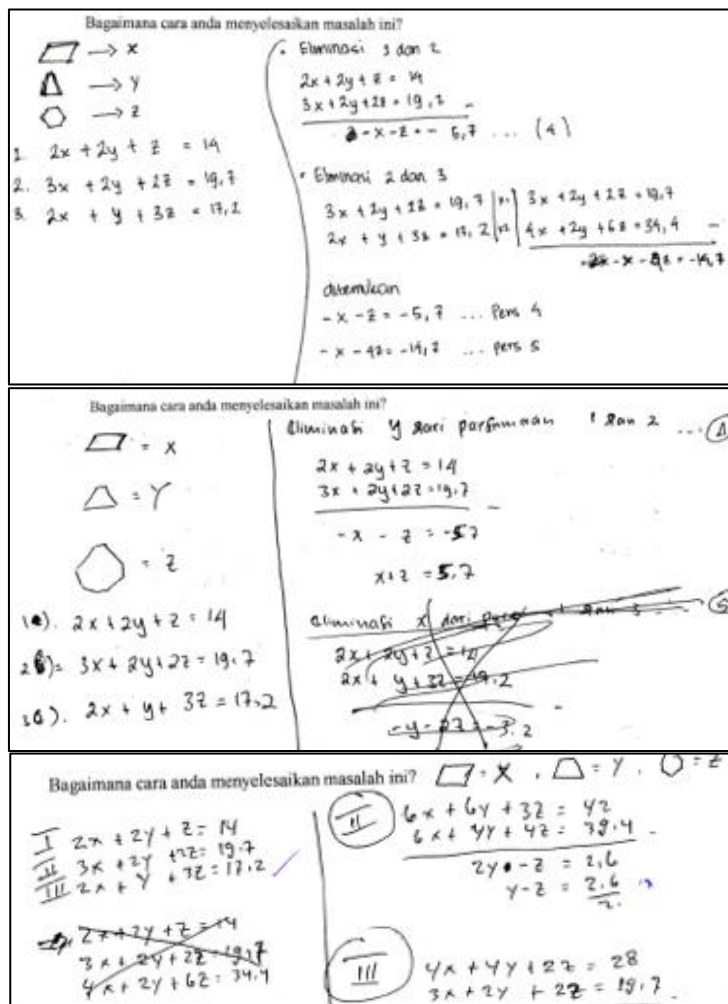 Bagaimana cara anda menyelesaikan masalah ini?
→ x
→ y
→ z
1. 2x + 2y + z = 14
2. 3x + 2y + 2z = 19,7
3. 2x + y + 3z = 17,2
• Eliminasi 1 dan 2
2x + 2y + z = 14
3x + 2y + 2z = 19,7 -
-x - z = - 5,7 ... (4)
• Eliminasi 2 dan 3
3x + 2y + 2z = 19,7 |x1| 3x + 2y + 2z = 19,7
2x + y + 3z = 17,2 |x2| 4x + 2y + 6z = 34,4 -
-x - 4z = -14,7
ditemukan
-x - z = -5,7 ... Pers 4
-x - 4z = -14,7 ... pers 5
Bagaimana cara anda menyelesaikan masalah ini?
= x
= y
= z
1). 2x + 2y + z = 14
2). 3x + 2y + 2z = 19.7
3). 2x + y + 3z = 17,2
Eliminasi y dari persamaan 1 dan 2 ... 4
2x + 2y + z = 14
3x + 2y + 2z = 19,7 -
-x - z = -5,7
x + z = 5,7
eliminasi x dari 1 dan 3
2x + 2y + z = 14
2x + y + 3z = 17,2 -
-y - 2z = -3.2
Bagaimana cara anda menyelesaikan masalah ini? = x , = y , = z
I 2x + 2y + z = 14
II 3x + 2y + 2z = 19.7
III 2x + y + 3z = 17,2
2x + 2y + z = 14
3x + 2y + 2z = 19,7
4x + 2y + 6z = 34,4
II 6x + 6y + 3z = 42
6x + 4y + 4z = 39.4 -
2y - z = 2,6
y - z = 2.6
2
III 4x + 4y + 2z = 28
3x + 2y + 2z = 19.7